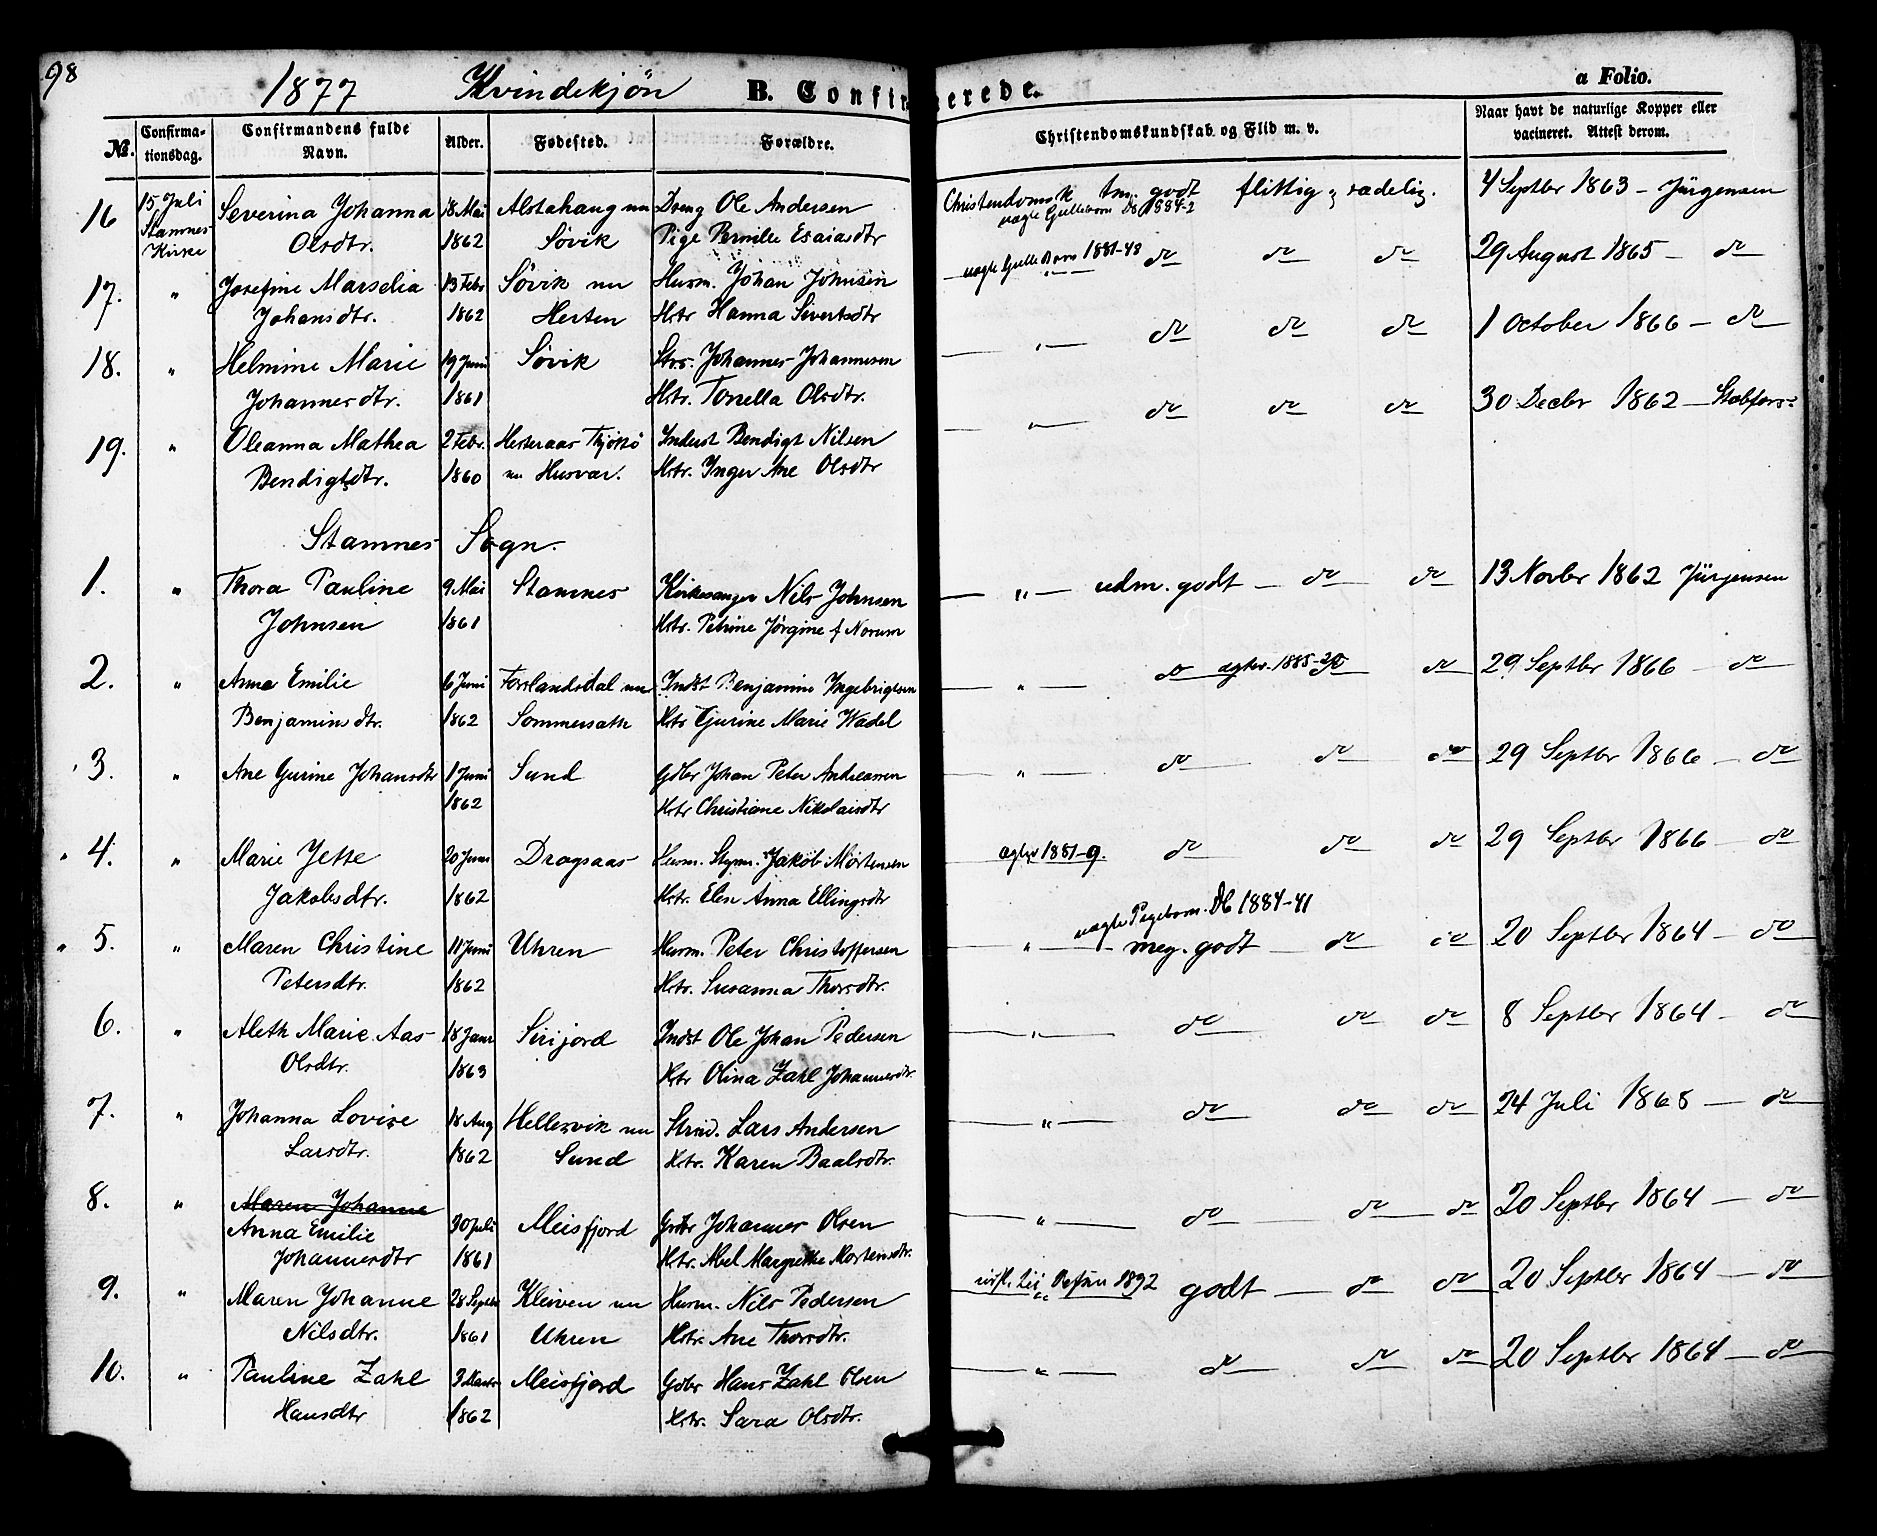 98
1877 Kvindekjøn B. Confirmerede. a Folio.
No. Confirmationsdag. Confirmandens fulde Navn. Alder. Fødested. Forældre. Christendomskundskab og Flid m. v. Naar havt de naturlige Kopper eller vacineret. Attest derom.
16 15 Juli Severina Johanna 18 Mai Alstahaug nu Dreng Ole Andersen Christendomsk tm. godt flittig og sædelig. 4 Septbr 1863 - Jürgensen
Stamnes Kirke Olsdtr. 1862 Søvik Pige Pernille Esaiasdtr
17. " Josefine Marselia 13 Febr Søvik nu Husm. Johan Johnsen 1881-48 do do do 29 August 1865 - do
Johansdtr. 1862 Hesten Hstr Hanna Sivertsdtr
18. " Helmine Marie 19 Juni Søvik Johannes Johannesen " do do do 1 October 1866 - do
Johannesdtr. 1861 Hstr. Torella Olsdtr.
19. " Oleanna Mathea 2 Febr. Hesteraas Thjøttø Inderst Bendigt Nilsen " do do do 30 Decbr 1862
Bendigtsdtr. 1860 nu Husvær. Hstr. Inger Ane Olsdtr
Stamnes Sogn.
1. " Thora Pauline 9 Mai Stamnes Kirkesanger Nils Johnsen " udm. godt - do do 13 Novbr 1862 Jürgensen
Johnsen 1861 Hstr. Petrine Jørgine f Norum
2. " Anna Emilie 6 Juni Forslandsdal nu Indst Benjamin Ingebrigtsen " do ægtev. 1885-20 do 29 Septbr 1866 - do
Benjaminsdtr. 1862 Sommersæth Hstr Gjurine Marie Wadel
3. " Ane Gurine Johansdtr 1 Juni Sund Gdbr Johan Peter Andreassen " do do do 29 Septbr 1866 - do
1862 Hstr Christiane Nikolaisdtr
4. " Marie Jette 20 Juni Dragsaas Husm. Styrm. Jakob Mortensen ægtev 1881-9. do do do 29 Septbr 1866 - do
Jakobsdtr. 1862 Hstr. Elen Anna Ellingsdtr
5. " Maren Christine 11 Juni Uhren Husm. Peter Christoffersen " meg. godt - do do 20 Septbr 1864 - do
Petersdtr. 1862 Hstr. Susanna Thorsdtr.
6. " Aleth Marie Aas- 18 Janr Sirijord Indst Ole Johan Pedersen " do do do 8 Septbr 1864 - do
Olsdtr. 1863 Hstr Olina Zahl Johannesdtr.
7. " Johanna Lovise 18 Aug Hellesvik nu Strsd. Lars Andersen " do do do 24 Juli 1868 - do
Larsdtr. 1862 Sund Hstr. Karen Baalsdtr.
8. " Maren Johanne
Anna Emilie 30 Juli Meisfjord Gdbr Johannes Olsen " do do do 20 Septbr 1864 - do
Johannesdtr 1861 Hstr. Abel Margrethe Mortensdtr.
9. " Maren Johanne 28 Septbr Kleiven nu Husm. Nils Pedersen 1892 godt - do do 20 Septbr 1864 - do
Nilsdtr. 1861 Uhren Hstr. Ane Thorsdtr.
10. " Pauline Zahl 3 Marts Meisfjord Gdbr Hans Zahl Olsen " do do do 20 Septbr 1864 - do
Hansdtr 1862 Hstr. Sara Olsdtr.